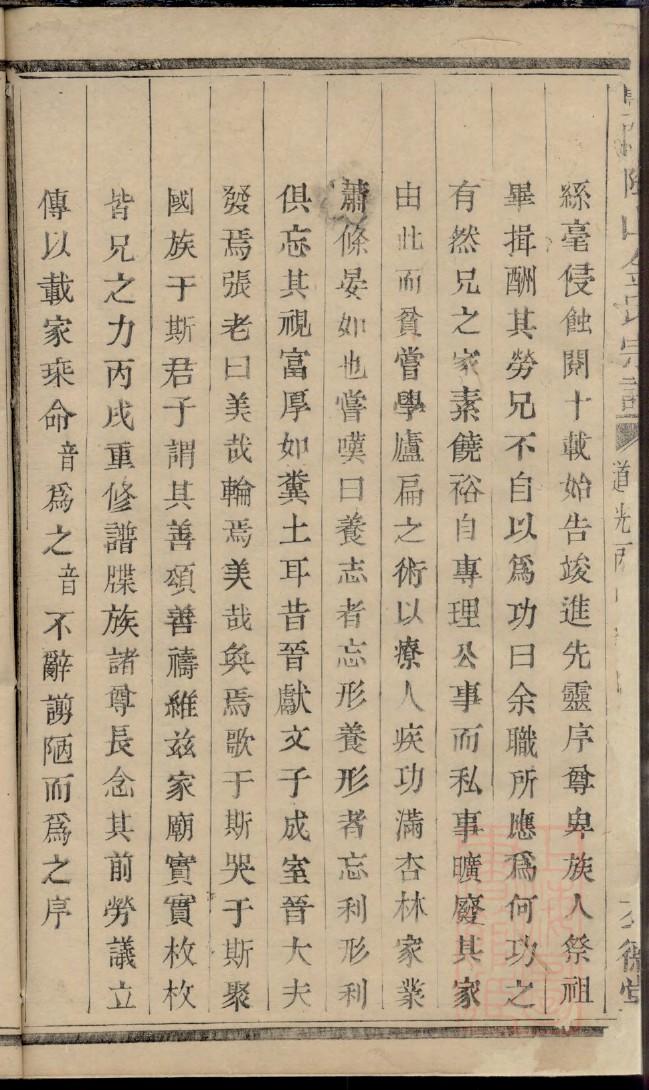 絲毫侵蝕閱十載始告竣進先靈序尊卑族人祭祖
畢揖酬其勞兄不自以爲功曰余職所應爲何功之
有然兄之家素饒裕自專理公事而私事曠廢其家
由此而貧嘗學廬扁之術以療人疾功滿杏林家業
蕭條晏如也嘗嘆曰養志者忘形養形者忘利形利
俱忘其視富厚如糞土耳昔晉獻文子成室晉大夫
發焉張老曰美哉輪焉美哉奐焉歌于斯哭于斯聚
國族于斯君子謂其善頌善禱維兹家廟實實枚枚
皆兄之力丙戌重修譜牒族諸尊長念其前勞議立
傳以載家乘命音爲之音不辭謭陋而爲之序
山金氏宗譜
道光丙